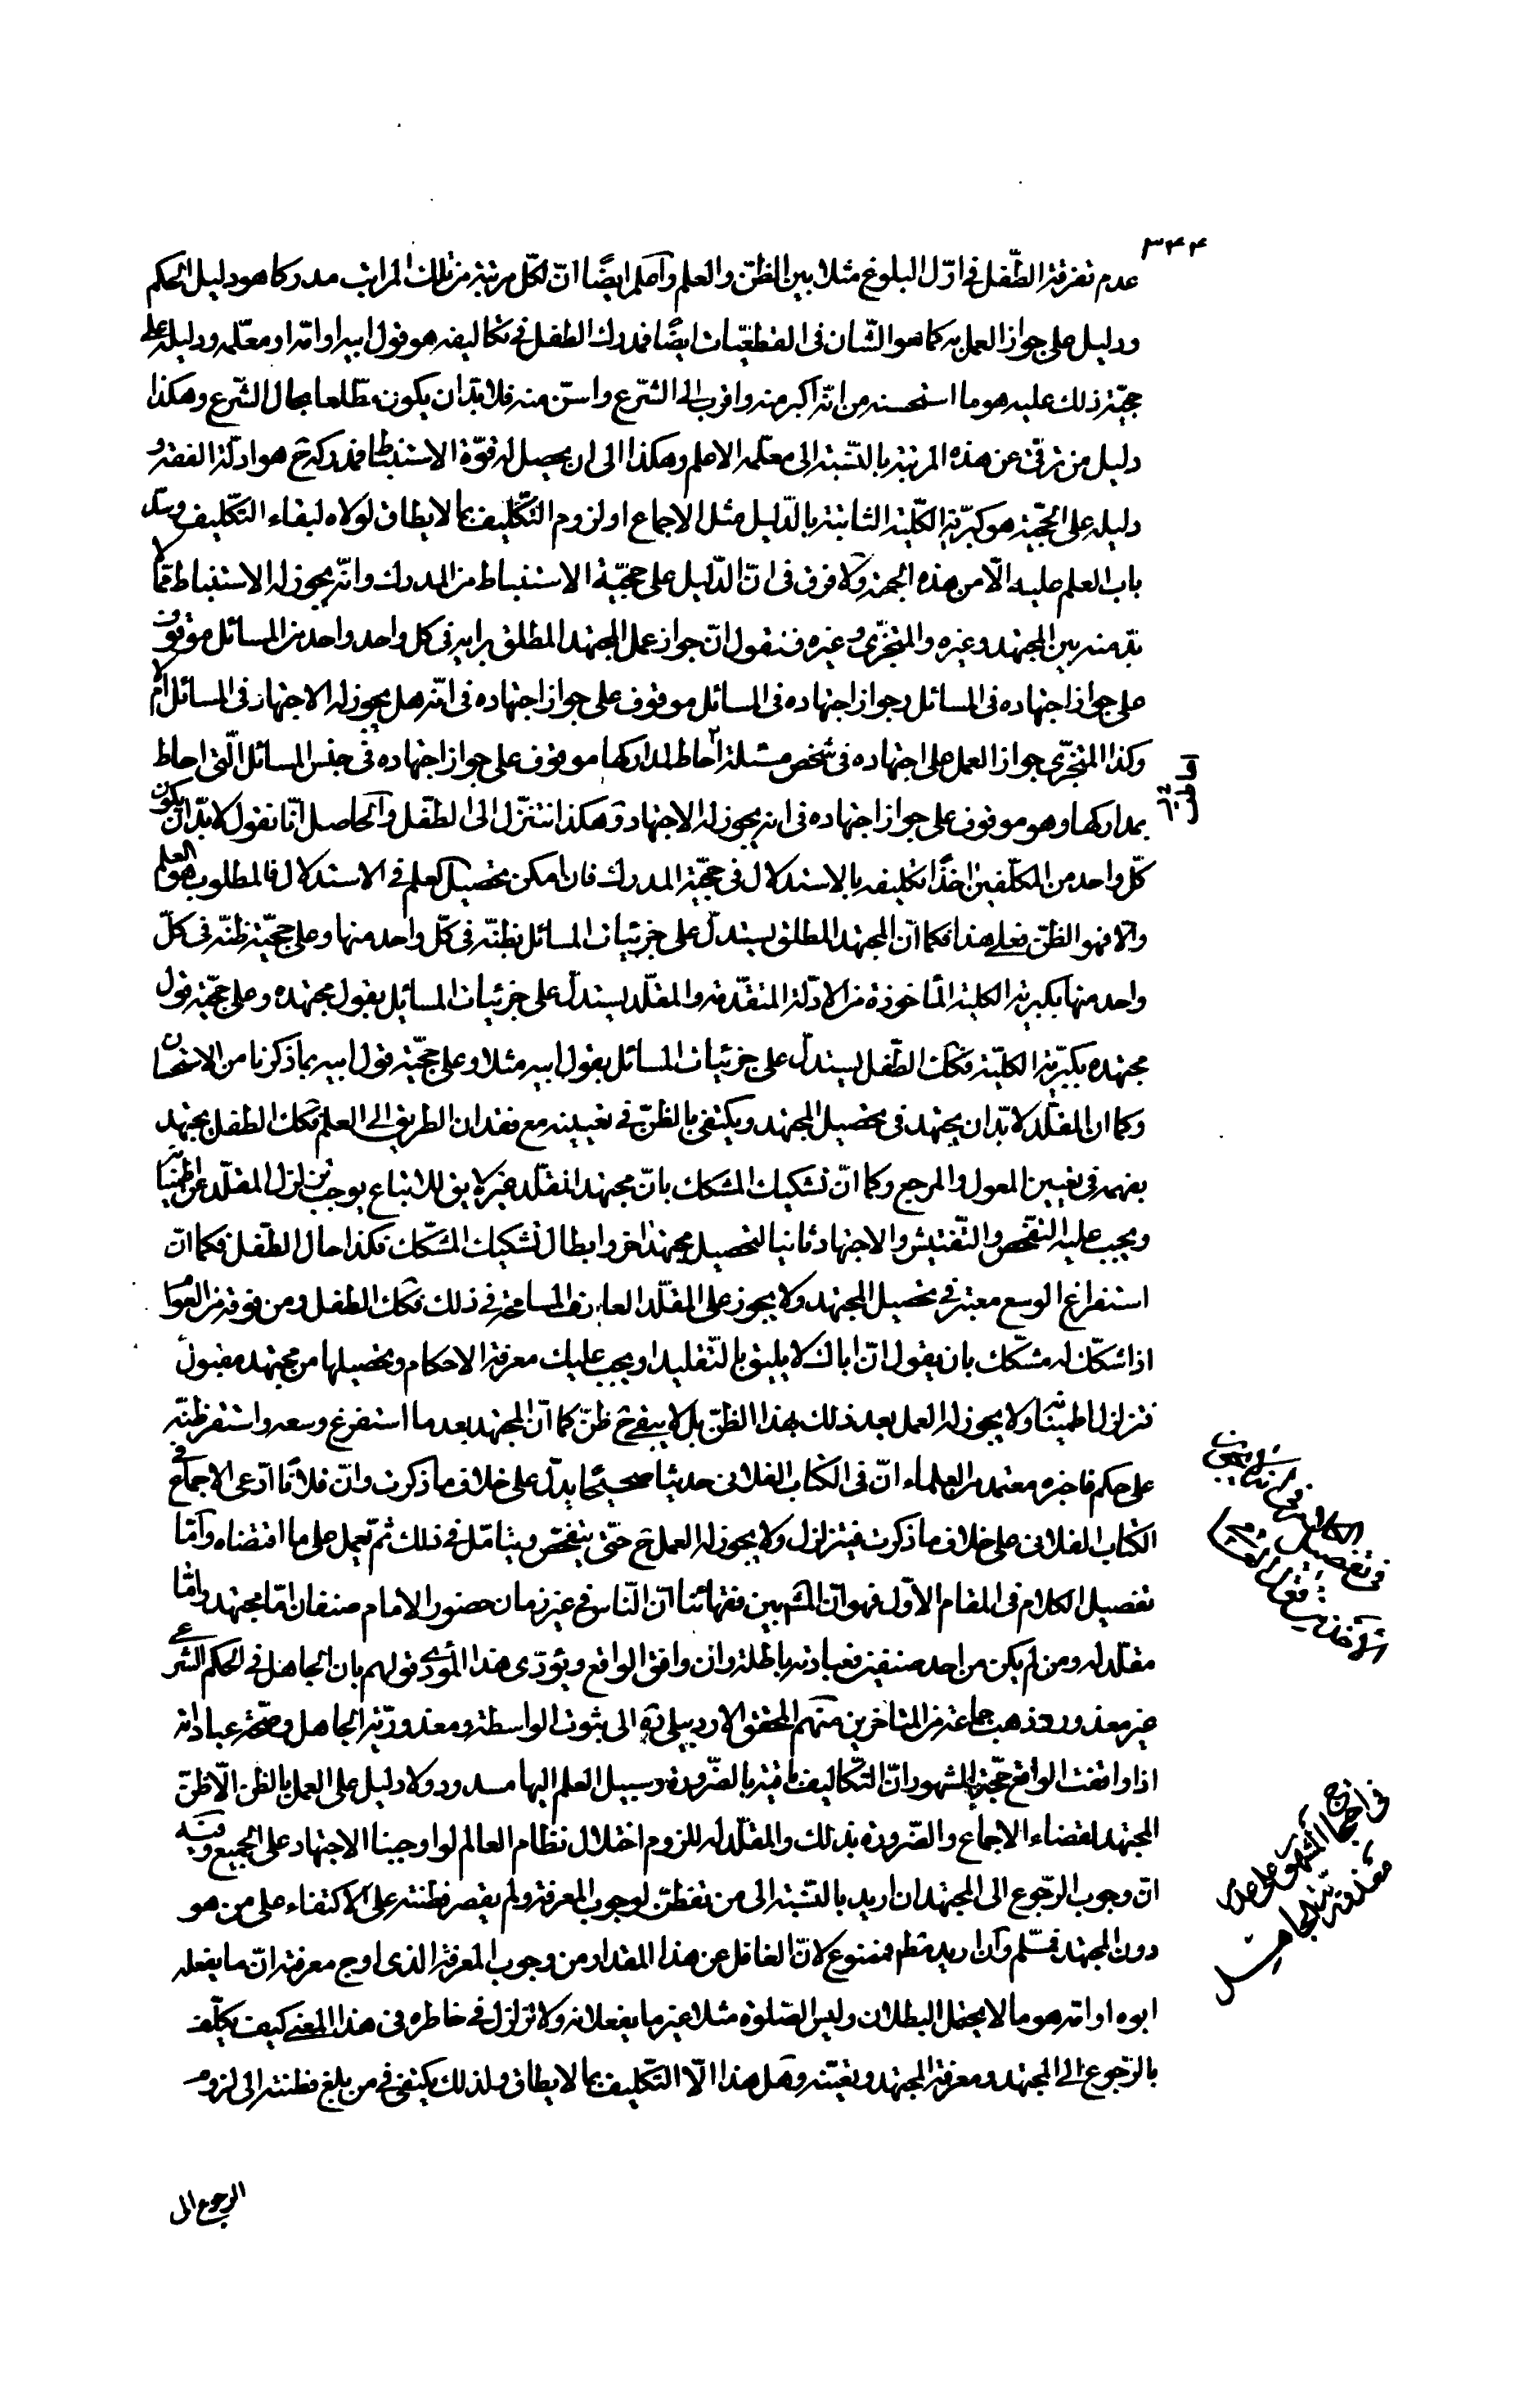 ٣٤٤
عدم تفرقة الطّفل فى اوّل البلوغ مثلا بين الظنّ والعلم وآعلم ايضًا انّ لكلّ مرتبة من تلك المراتب مدركا هو دليل الحكم
ودليل على جواز العمل به كما هو الشّان فى القطعيّات ايضًا فمدرك الطفل فى تكاليفه هو قول ابيه او امّه او معلّمه ودليله على
حجيّة ذلك عليه هو ما استحسنه من انّه اكبر منه واقرب الى الشّرع واسنّ منه فلا بدّ ان يكون مطّلعا بحال الشّرع وهكذا
دليل من ترقّى عن هذه المرتبة بالنّسبة الى معلّمه الاعلم وهكذا الى ان يحصل له قوّة الاستنباط فمدركه ح هو ادلّة الفقه و
دليله على الحجّية هو كبريّة الكلّية الثابتة بالدّليل مثل الاجماع او لزوم التّكليف بما لا يطاق لولاه لبقاء التّكليف وسدّ
باب العلم عليه الّا من هذه الجهة وَلا فرق فى انّ الدّليل على حجيّة الاستنباط من المدرك وانّه يجوز له الاستنباط ممّا لا
بدّ منه بين المجتهد وغيره والمتجزّى وغيره فنقول انّ جواز عمل المجتهد المطلق برايه فى كل واحد واحد من المسائل موقوف
على جواز اجتهاده فى المسائل وجواز اجتهاده فى المسائل موقوف على جواز اجتهاده فى انّه هل يجوز له الاجتهاد فى المسائل ام لا
وكذا المتجزّى جواز العمل على اجتهاده فى شخص مسئلة احاط بمداركها موقوف على جواز اجتهاده فى جنس المسائل الّتى احاط
بمداركها وهو موقوف على جواز اجتهاده فى انه يجوز له الاجتهاد وَهكذا نتنزّل الى الطّفل وَالحاصل انّا نقول لا بدّ ان يكون
كلّ واحد من المكلّفين اخذًا تكليفه بالاستدلال فى حجّية المدرك فان امكن تحصيل العلم فى الاستدلال فالمطلوب هو العلم
والّا فهو الظنّ فعلى هذا فكما انّ المجتهد المطلق يستدلّ على جزئيات المسائل بظنّه فى كلّ واحد منها وعلى حجيّة ظنّه فى كلّ
واحد منها بكبريّة الكلية المأخوذة من الادلّة المتقدّمة والمقلّد يستدلّ على جزئيات المسائل بقول مجتهده وعلى حجّية قول
مجتهده بكبريّة الكليّة فكك الطّفل يستدلّ على جزئيات المسائل بقول ابيه مثلا وعلى حجّية قول ابيه بما ذكرنا من الاستحسان
وكما ان المقلّد لا بدّ ان يجتهد فى تحصيل المجتهد ويكتفى بالظنّ فى تعيينه مع فقدان الطريق الى العلم فكك الطفل يجتهد
بفهمه فى تعيين المعول والمرجع وكما انّ تشكيك المشكك بانّ مجتهد المقلّد غير لايق للاتباع يوجب تزلزل المقلّد عن اطمينانه
ويجب عليه التفحّص والتّفتيش والاجتهاد ثانيا لتحصيل مجتهد اخر وابطال تشكيك المشكّك فكذا حال الطّفل فكما انّ
استفراغ الوسع معتبر فى تحصيل المجتهد ولا يجوز على المقلّد العارف المسامحة فى ذلك فكك الطفل ومن فوقه من العوام
اذا شكّك له مشكّك بان يقول انّ اباك لا يليق بالتّقليد او يجب عليك معرفة الاحكام وتحصيلها من مجتهد مقبول
فتزلزل اطمينانه ولا يجوز له العمل بعد ذلك بهذا الظنّ بل لا يبقى ح ظنّ كما انّ المجتهد بعد ما استفرغ وسعه واستقر ظنّه
على حكم فاخبره معتمد من العلماء انّ فى الكتاب الفلانى حديثا صحيحًا يدلّ على خلاف ما ذكرت وانّ فلانًا ادّعى الاجماع فى
الكتاب الفلانى على خلاف ما ذكرت فيتزلزل ولا يجوز له العمل ح حتّى يتفحّص ويتامّل فى ذلك ثم يعمل على ما اقتضاه وآمّا
تفصيل الكلام فى المقام الاوّل فهو انّ المشهور بين فقهائنا انّ النّاس فى غير زمان حضور الامام صنفان امّا مجتهد وامّا
مقلّد له ومن لم يكن من احد صنفين فعبادته باطلة وان وافق الواقع ويؤدّى هذا المؤدّى قولهم بان الجاهل فى الحكم الشرعى
غير معذور وذهب جماعة من المتاخرين منهم المحقق الاردبيلى ره الى ثبوت الواسطة ومعذوريّة الجاهل وصحّة عباداته
اذا وافقت الواقع حجّة المشهور انّ التّكاليف باقية بالضّرورة وسبيل العلم اليها مسدود ولا دليل على العمل بالظن الّا ظنّ
المجتهد لقضاء الاجماع والضّرورة بذلك والمقلّد له للزوم اختلال نظام العالم لو اوجبنا الاجتهاد على الجميع وفيه
انّ وجوب الرّجوع الى المجتهد ان اريد بالنّسبة الى من تفطّن لوجوب المعرفة ولم يقصر فطنته على الاكتفاء على من هو
دون المجتهد فمسلّم وَان اريد مطم فممنوع لانّ الغافل عن هذا المقدار من وجوب المعرفة الذى اوج معرفته انّ ما يفعله
ابوه او امّه هو ما لا يحتمل البطلان وليس الصّلوة مثلا غير ما يفعلانه ولا تزلزل فى خاطره فى هذا المعنى كيف يكلّف
بالرّجوع الى المجتهد ومعرفة المجتهد وتعيّنه وهل هذا الّا التّكليف بما لا يطاق ولذلك يكتفى فى من بلغ فطنته الى لزوم
الرجوع الى
فى تفصيل الكلام
فى احتجاج المشهور على عدم
معذوريّة الجاهل